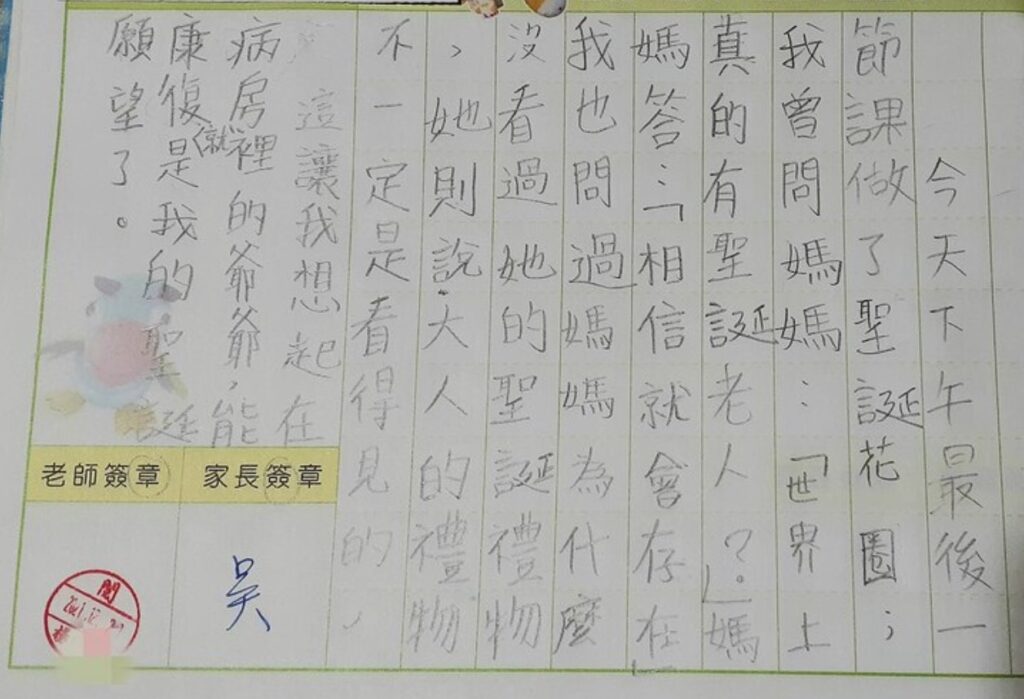 今天下午最後一
節課做了聖誕花圈；
我曾問媽媽：「世界上
真的有聖誕老人？」媽
媽答：「相信就會存在」
我也問過媽媽為什麼
沒看過她的聖誕禮物
，她則說大人的禮物
不一定是看得見的，
這讓我想起在
病房裡的爺爺，能
康復（就是我的聖誕
願望了。
老師簽章
家長簽章
吳
閱